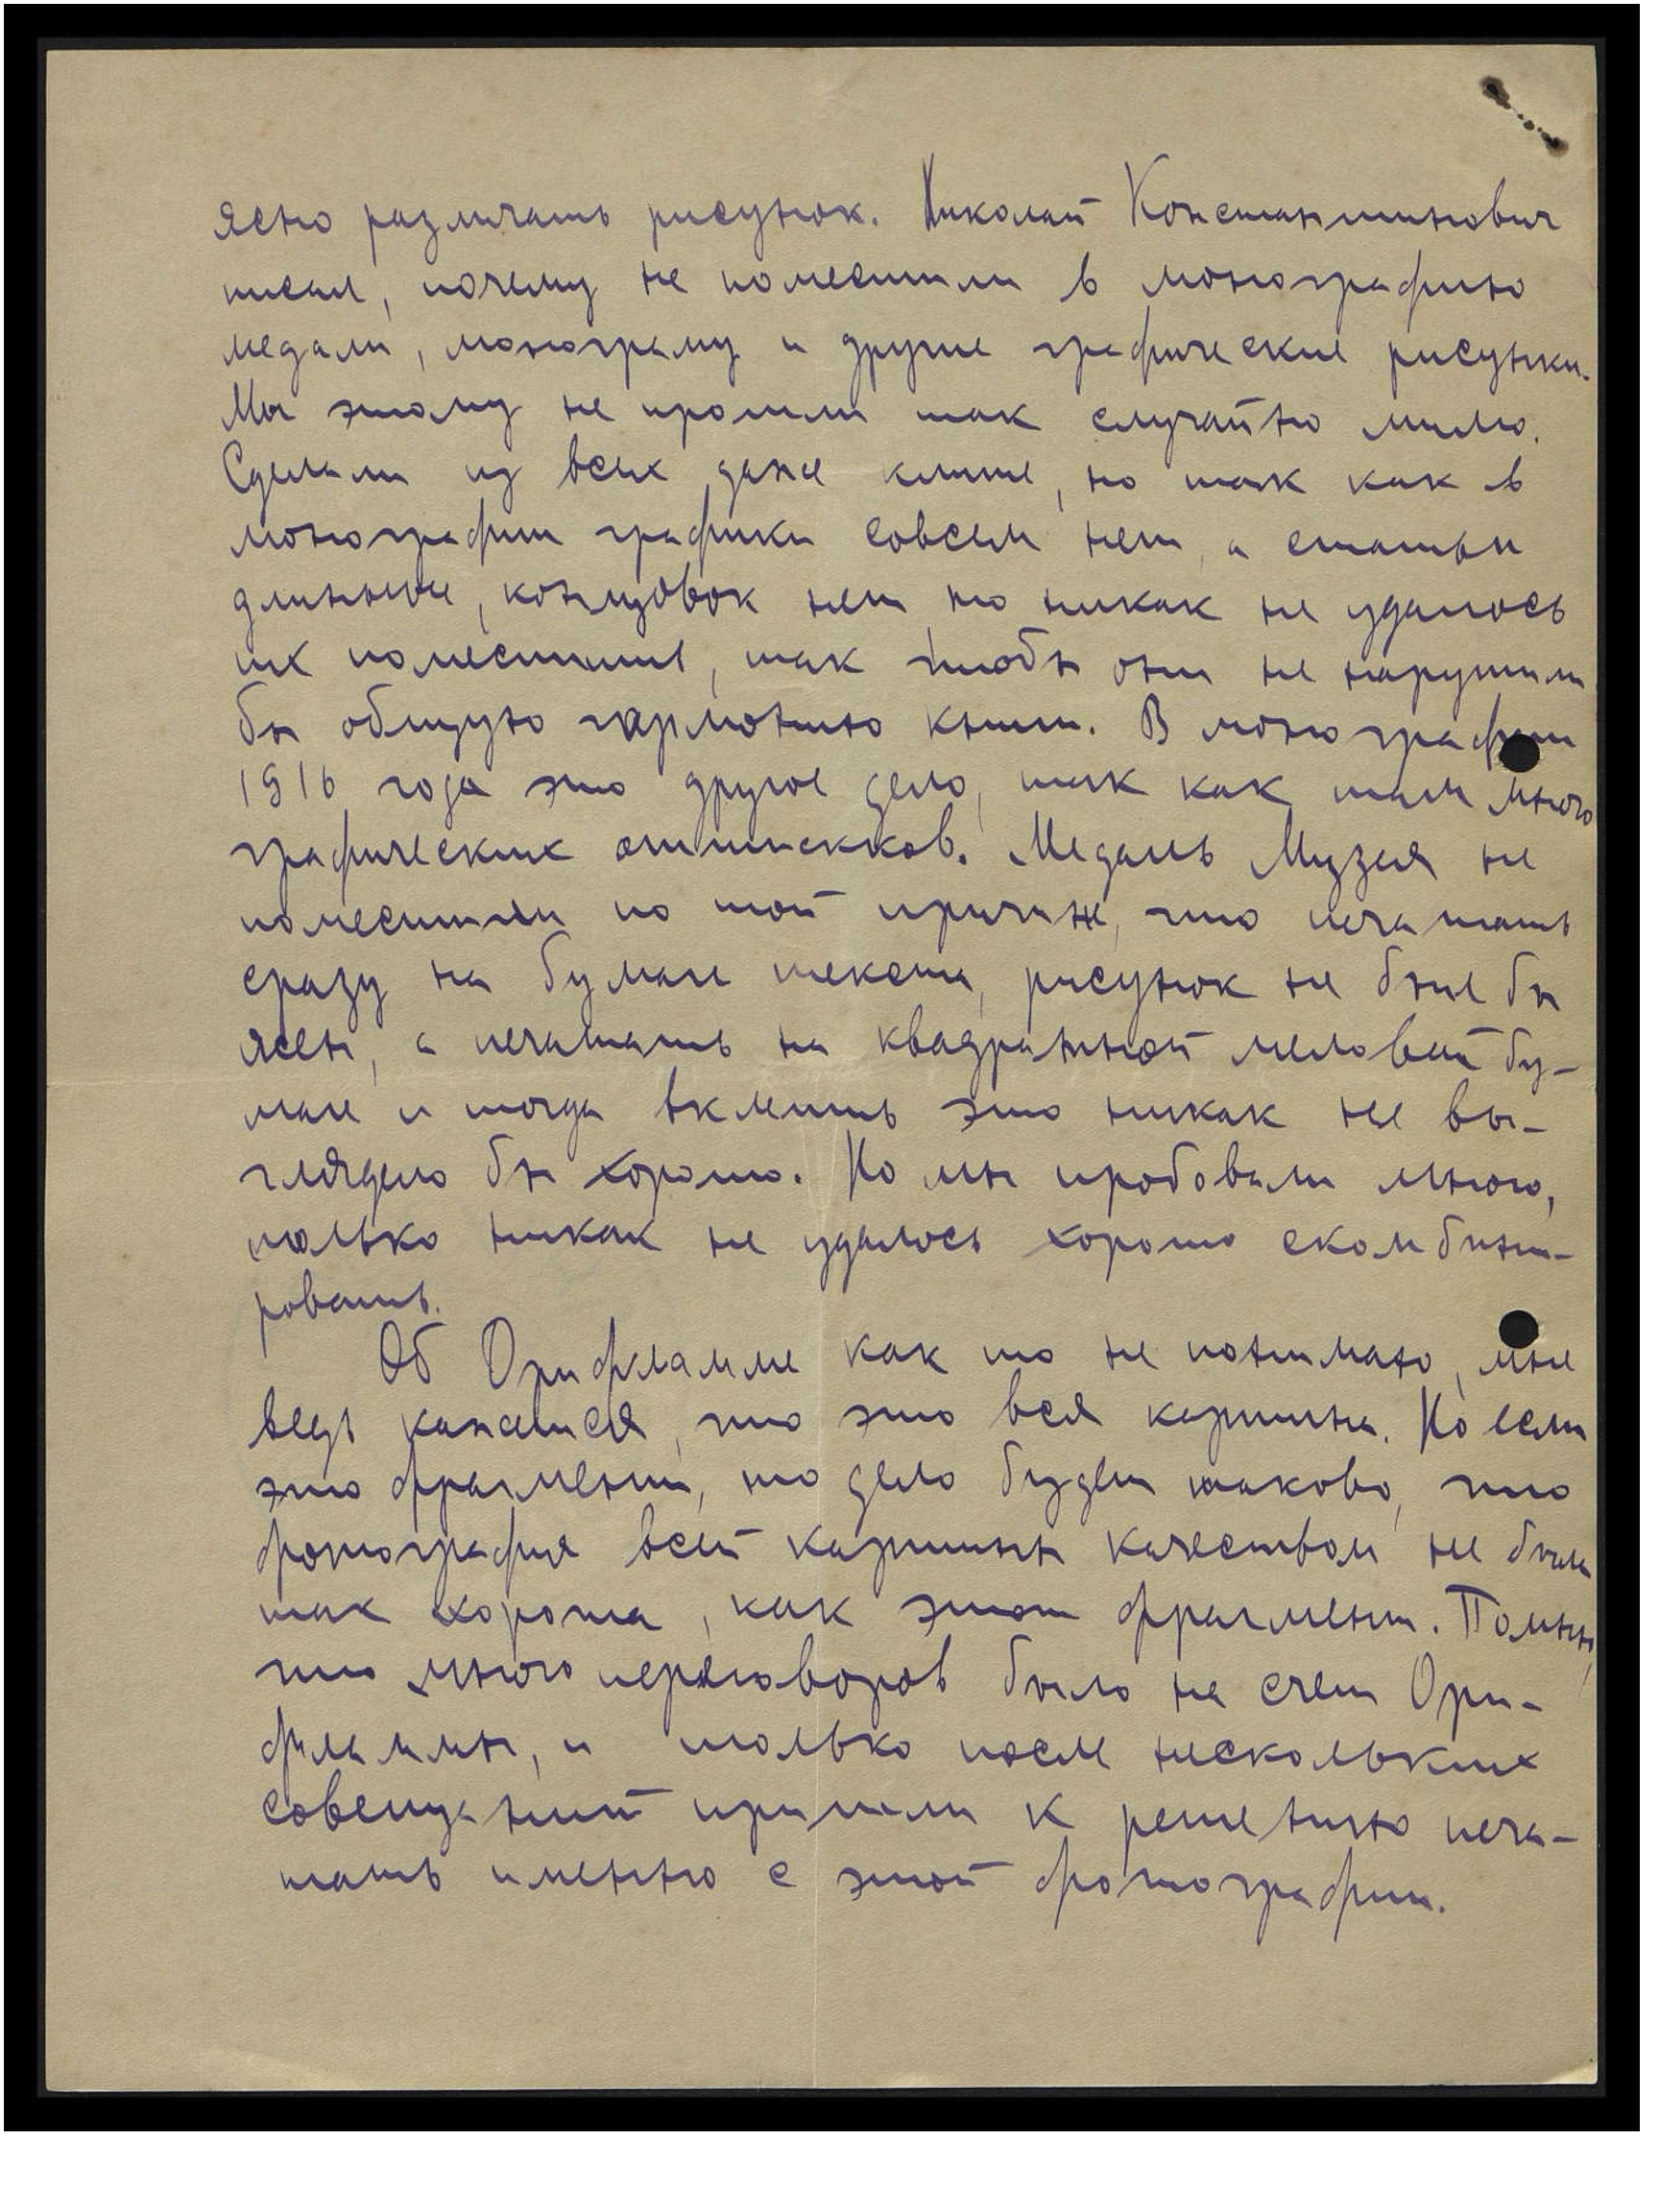 ясно различать рисунок. Николай Константинович
писал, почему не поместили в монографию
медали, монограму и другие графические рисунки.
Мы этому не прошли так случайно мимо.
Сделали из всех даже клише, но так как в
монографии графики совсем нет, а статьи
длинные, концовок нет, то никак не удалось
их поместить, так чтобы они не нарушили
бы общую гармонию книги. В монографии
1916 года это другое дело, так как там много
графических оттисков. Медаль Музея не
поместили по той причине, что печатать
сразу на бумаге текста, рисунок не был бы
ясен, а печатать на квадратной меловой бу-
маге и тогда вклеить это никак не вы-
глядело бы хорошо. Но мы пробовали много,
только никак не удалось хорошо скомбини-
ровать.
Об Орифламме как то не понимаю, мне
ведь кажется, что это вся картина. Но если
это фрагмент, то дело будет таково, что
фотография всей картины качеством не была
так хороша, как этот фрагмент. Помню,
что много переговоров было на счет Ори-
фламмы, и только после нескольких
совещаний пришли к решению печа-
тать именно с этой фотографии.